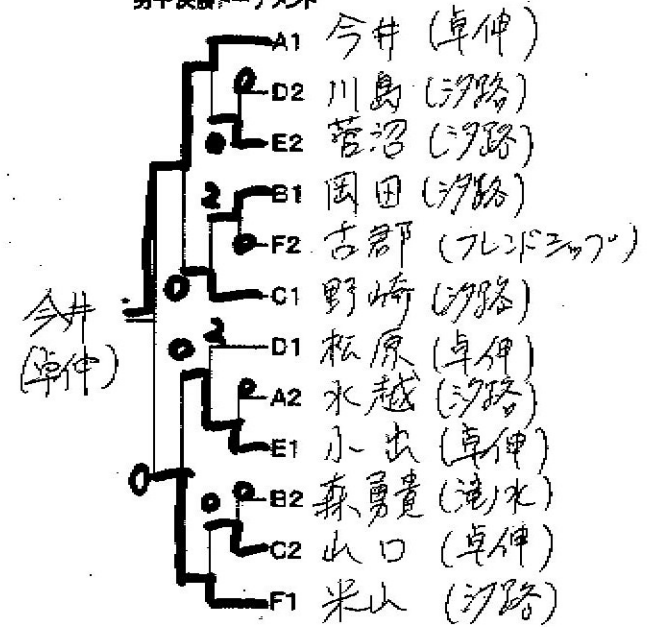 男子決勝トーナメント
A1 今井 (卓伸)
0 D2 川島 (汐路)
0 E2 菅沼 (汐路)
2 B1 岡田 (汐路)
0 F2 古郡 (フレンドシップ)
0 C1 野崎 (汐路)
今井
(卓伸)
0 2 D1 松原 (卓伸)
0 A2 水越 (汐路)
E1 小出 (卓伸)
0 0 0 B2 森勇貴 (滝ノ水)
C2 山口 (卓伸)
F1 米山 (汐路)